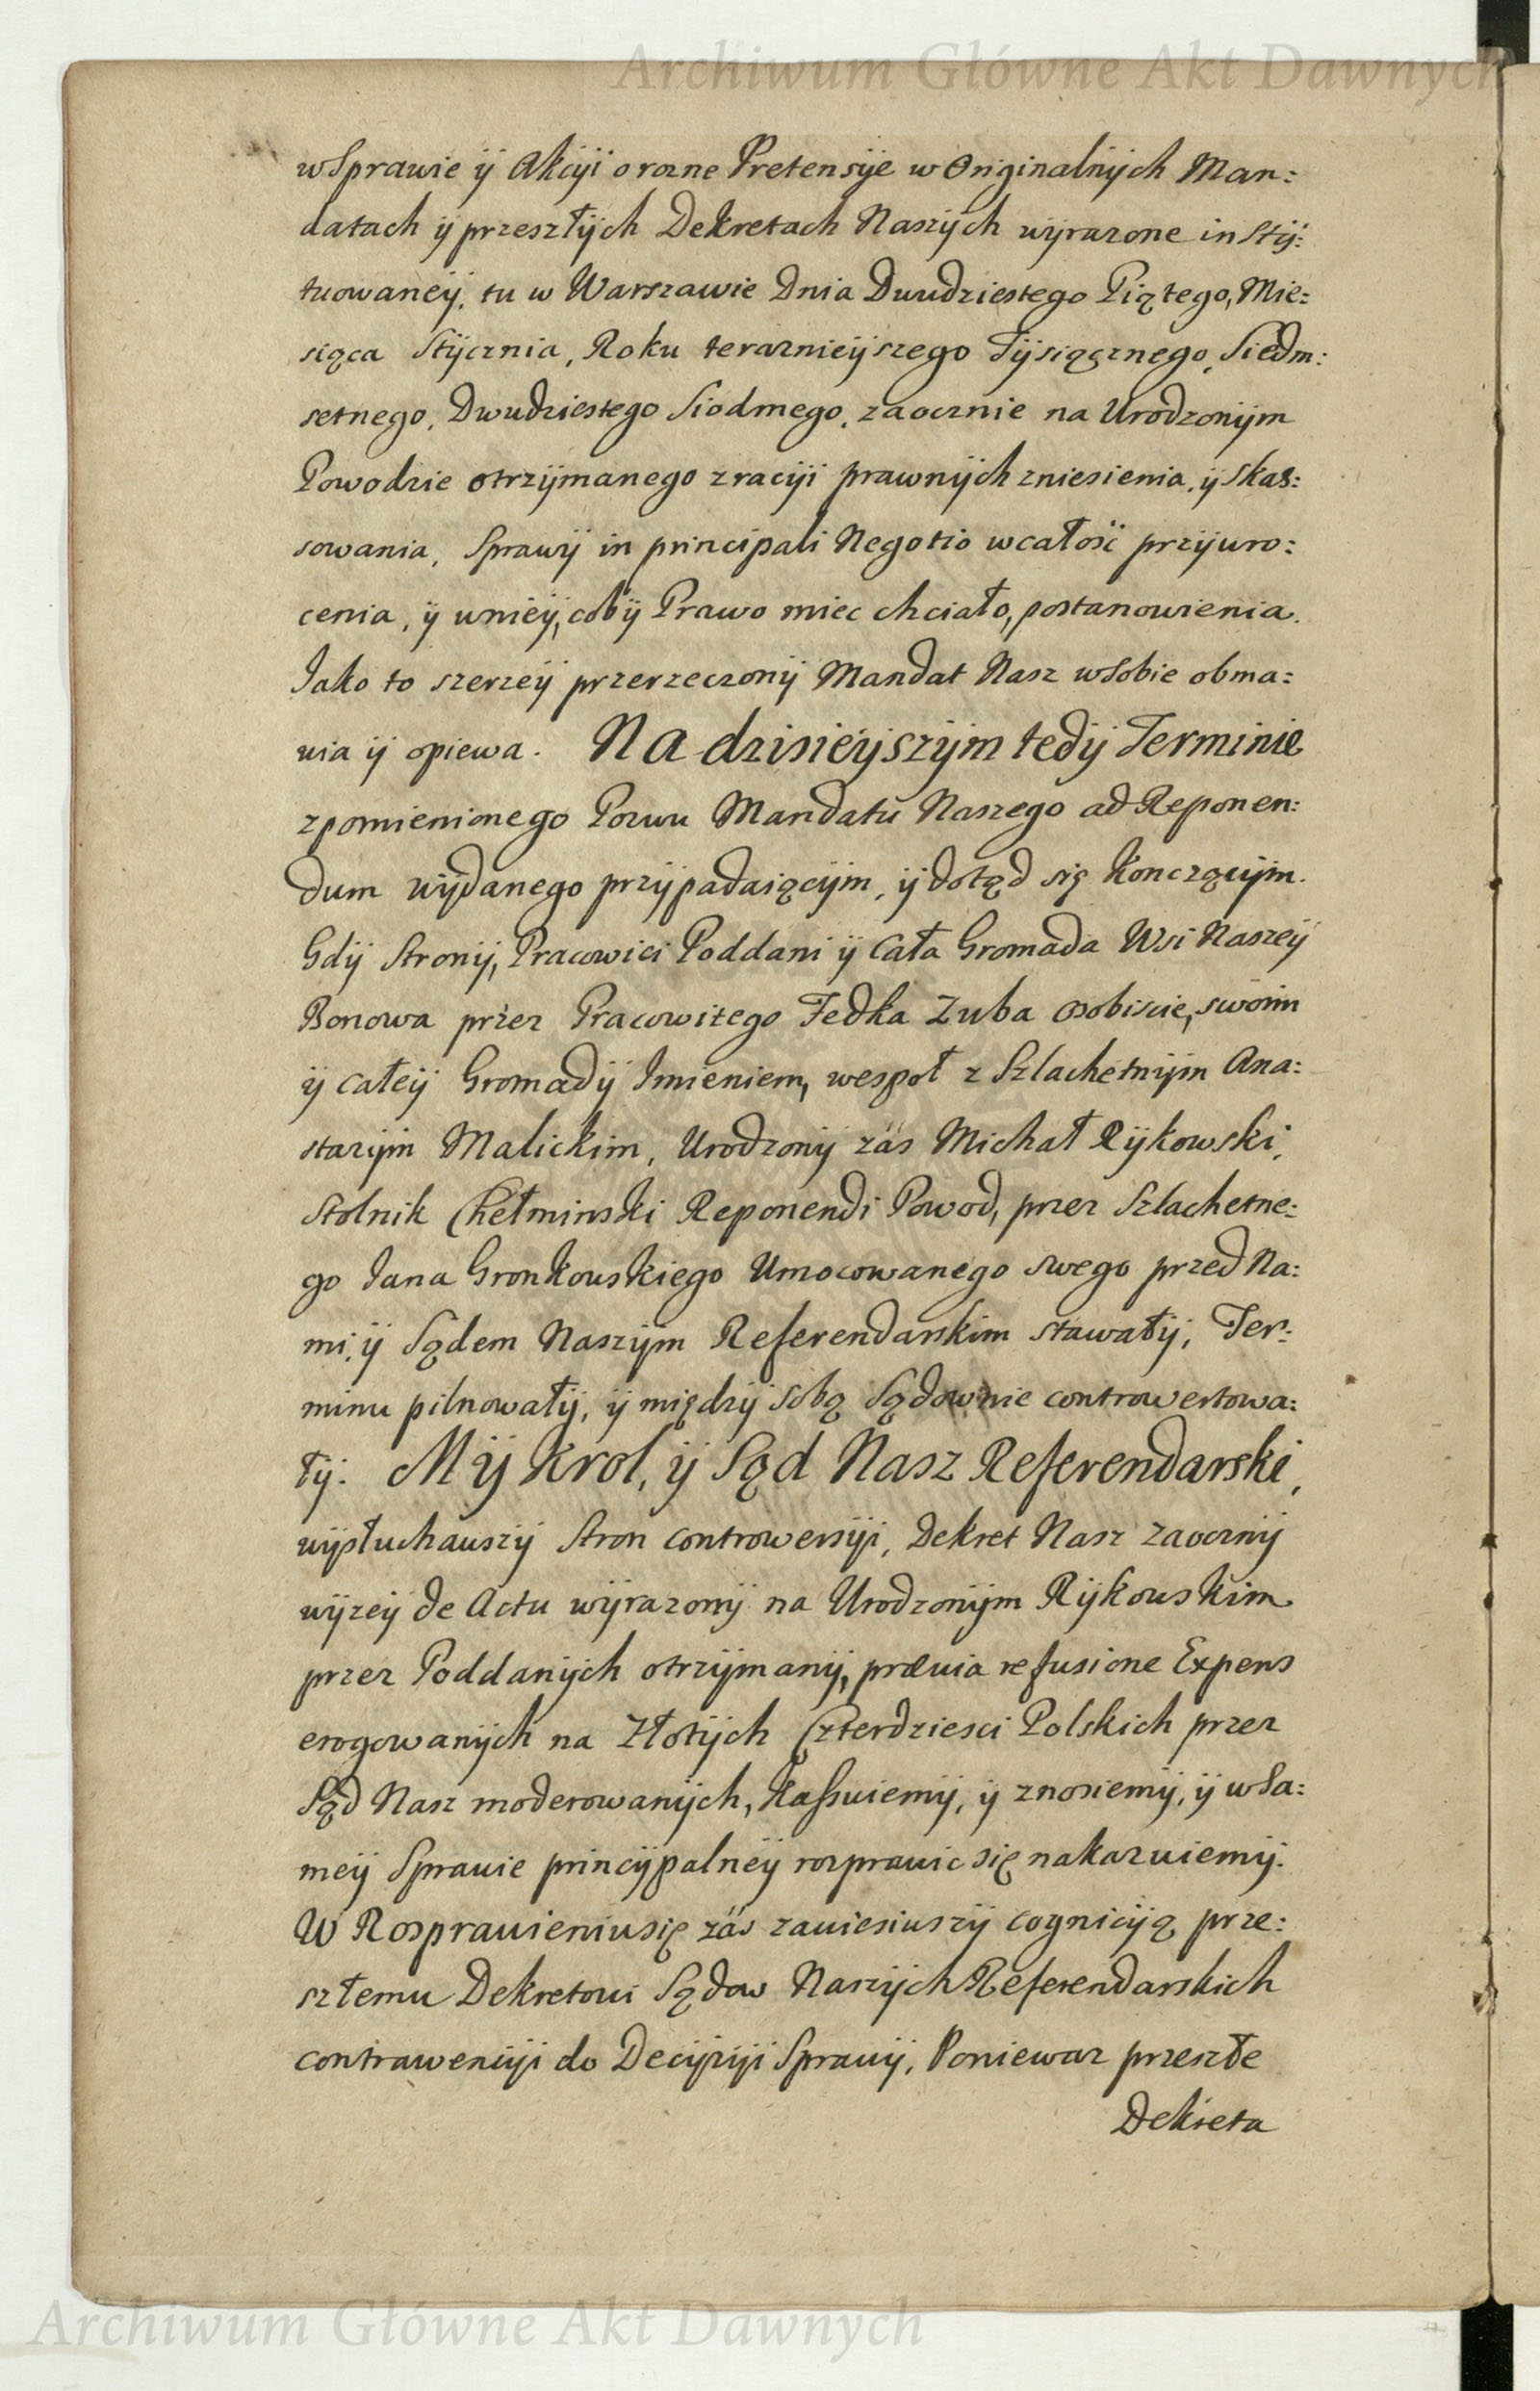 Archiwum Główne Akt Dawnych
w Sprawie ÿ Akcÿi o rozne Pretensÿe w Originalnÿch Man:
datach ÿ przeszłÿch Dekretach Naszÿch wÿrazone in Stÿ:
tuowaneÿ, tu w Warszawie Dnia Dwudziestego Piątego, Mie:
siąca Stÿcznia, Roku teraznieÿszego Tÿsiącznego, Siedm:
setnego, Dwudziestego Siodmego, zaocznie na Urodzonÿm
Powodzie otrzÿmanego z raciÿi prawnÿch zniesienia, ÿ Skas:
sowania, Sprawÿ in principali Negotio w całość przÿwro:
cenia, ÿ wnieÿ, cobÿ Prawo miec chciało, postanowienia.
Jako to szerzeÿ przerzeczonÿ Mandat Nasz w Sobie obma:
wia ÿ opiewa. Na dzisieÿszÿm tedÿ Terminie
z pomienionego Pozwu Mandatu Naszego ad Reponen:
dum wÿdanego przÿpadaiącÿm, ÿ dotąd się Konczącÿm.
Gdÿ Stronÿ, Pracowici Poddani ÿ Cała Gromada Wsi Naszeÿ
Bonowa przez Pracowitego Fedka Zuba osobiscie, swoim
ÿ całeÿ Gromadÿ Jmieniem, wespoł z Szlachetnÿm Ana:
stazÿm Malickim, Urodzonÿ zás Michał Rÿkowski,
Stolnik Chełminski Reponendi Powod, przez Szlachetne:
go Jana Gronkowskiego Umocowanego swego przed Na:
mi, ÿ Sądem Naszÿm Referendarskim stawałÿ, Ter:
minu pilnowałÿ, ÿ międzÿ sobą Sądownie controwertowa:
łÿ. Mÿ Krol, ÿ Sąd Nasz Referendarski,
wÿsłuchauszÿ Stron controwersÿi, Dekret Nasz zaocznÿ
wÿzeÿ de Actu wÿrazonÿ na Urodzonÿm Rÿkowskim
przez Poddanÿch otrzÿmanÿ, prævia refusione Expens
erogowanÿch na Złotÿch Czterdziesci Polskich przez
Sąd Nasz moderowanÿch, Kassuiemÿ, ÿ znosiemÿ, ÿ w Sa:
meÿ Sprawie princÿpalneÿ rozprawic się nakazuiemÿ.
W Rosprawieniu się zás zawiesiuszÿ cognicÿą prze:
szłemu Dekretowi Sądow Naszÿch Referendarskich
contrawencÿi do Decÿzÿi Sprawÿ, Poniewaz przeszłe
Dekreta
Archiwum Główne Akt Dawnych